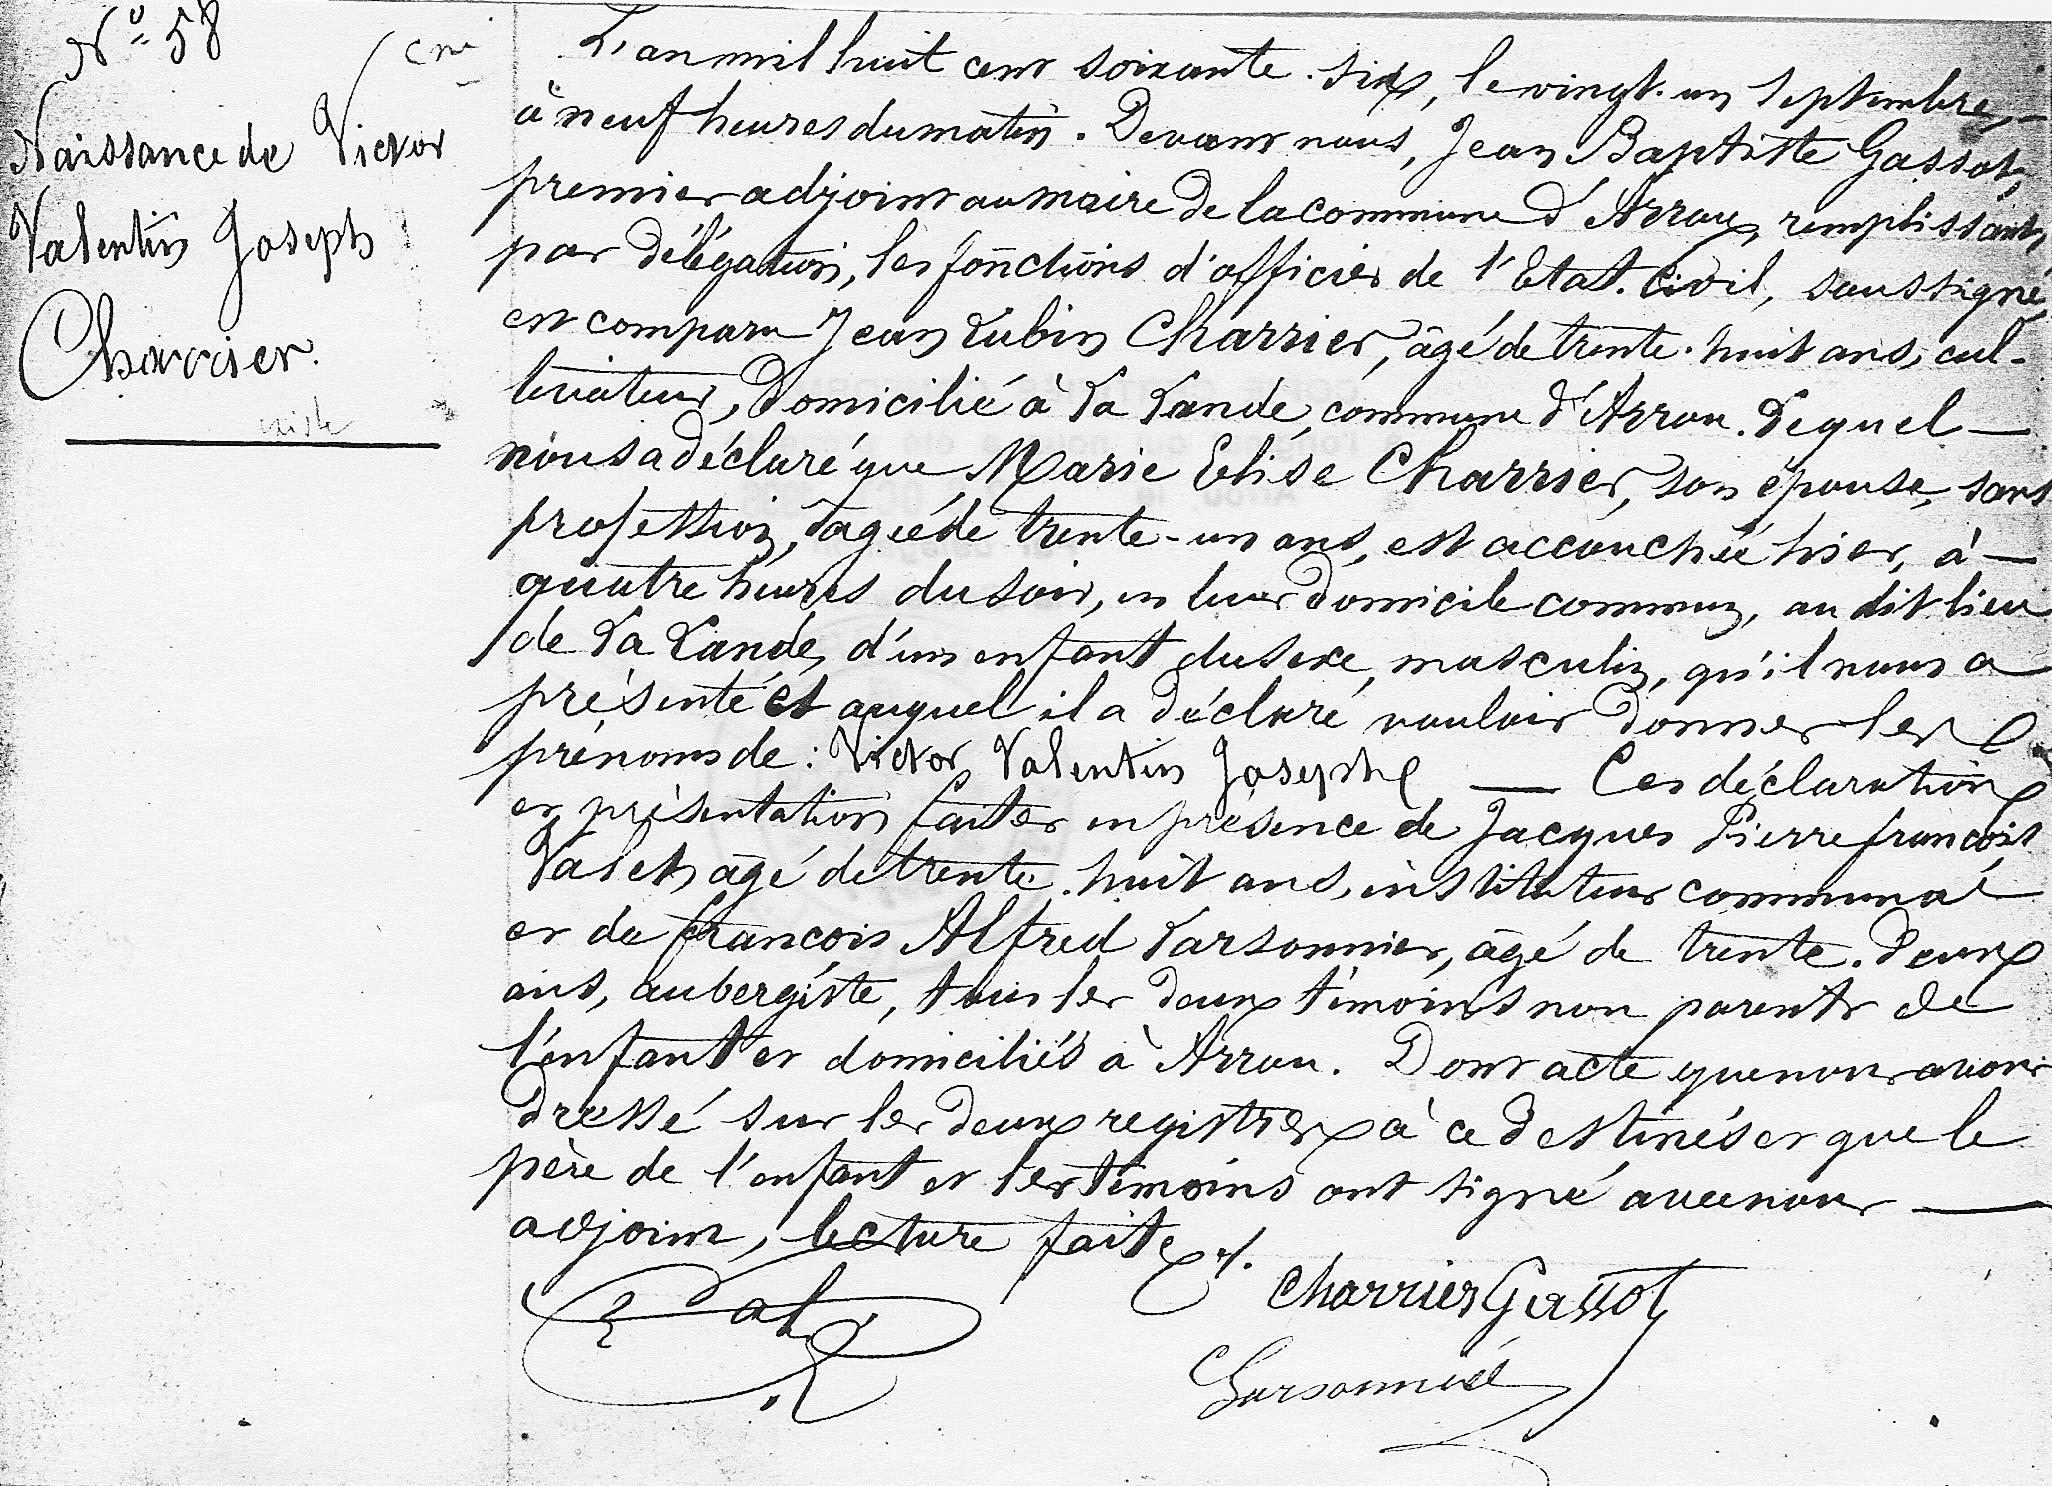 N° 58
Naissance de Victor
Valentin Joseph
Charrier.
L'an mil huit cent soixante-six, le vingt-un septembre,
à neuf heures du matin. Devant nous, Jean Baptiste Gassot,
premier adjoint au maire de la commune d'Arrou, remplissant,
par délégation, les fonctions d'officier de l'Etat-Civil, soussigné,
est comparu Jean Lubin Charrier, âgé de trente-huit ans, cul-
tivateur, domicilié à La Lande, commune d'Arrou. Lequel
nous a déclaré que Marie Elise Charrier, son épouse, sans
profession, âgée de trente-un ans, est accouchée hier, à
quatre heures du soir, en leur domicile commun, au dit lieu
de La Lande, d'un enfant du sexe masculin, qu'il nous a
présenté et auquel il a déclaré vouloir donner les
prénoms de : Victor Valentin Joseph — Ces déclaration
et présentation faites en présence de Jacques Pierre françois
âgé de trente-huit ans, instituteur communal
et de françois Alfred Larsonnier, âgé de trente-deux
ans, aubergiste, tous les deux témoins non parents de
l'enfant et domiciliés à Arrou. Dont acte que nous avons
dressé sur les deux registres à ce destinés et que le
père de l'enfant et les témoins ont signé avec nous
adjoint, lecture faite ./.
Charrier Gassot
Larsonnier